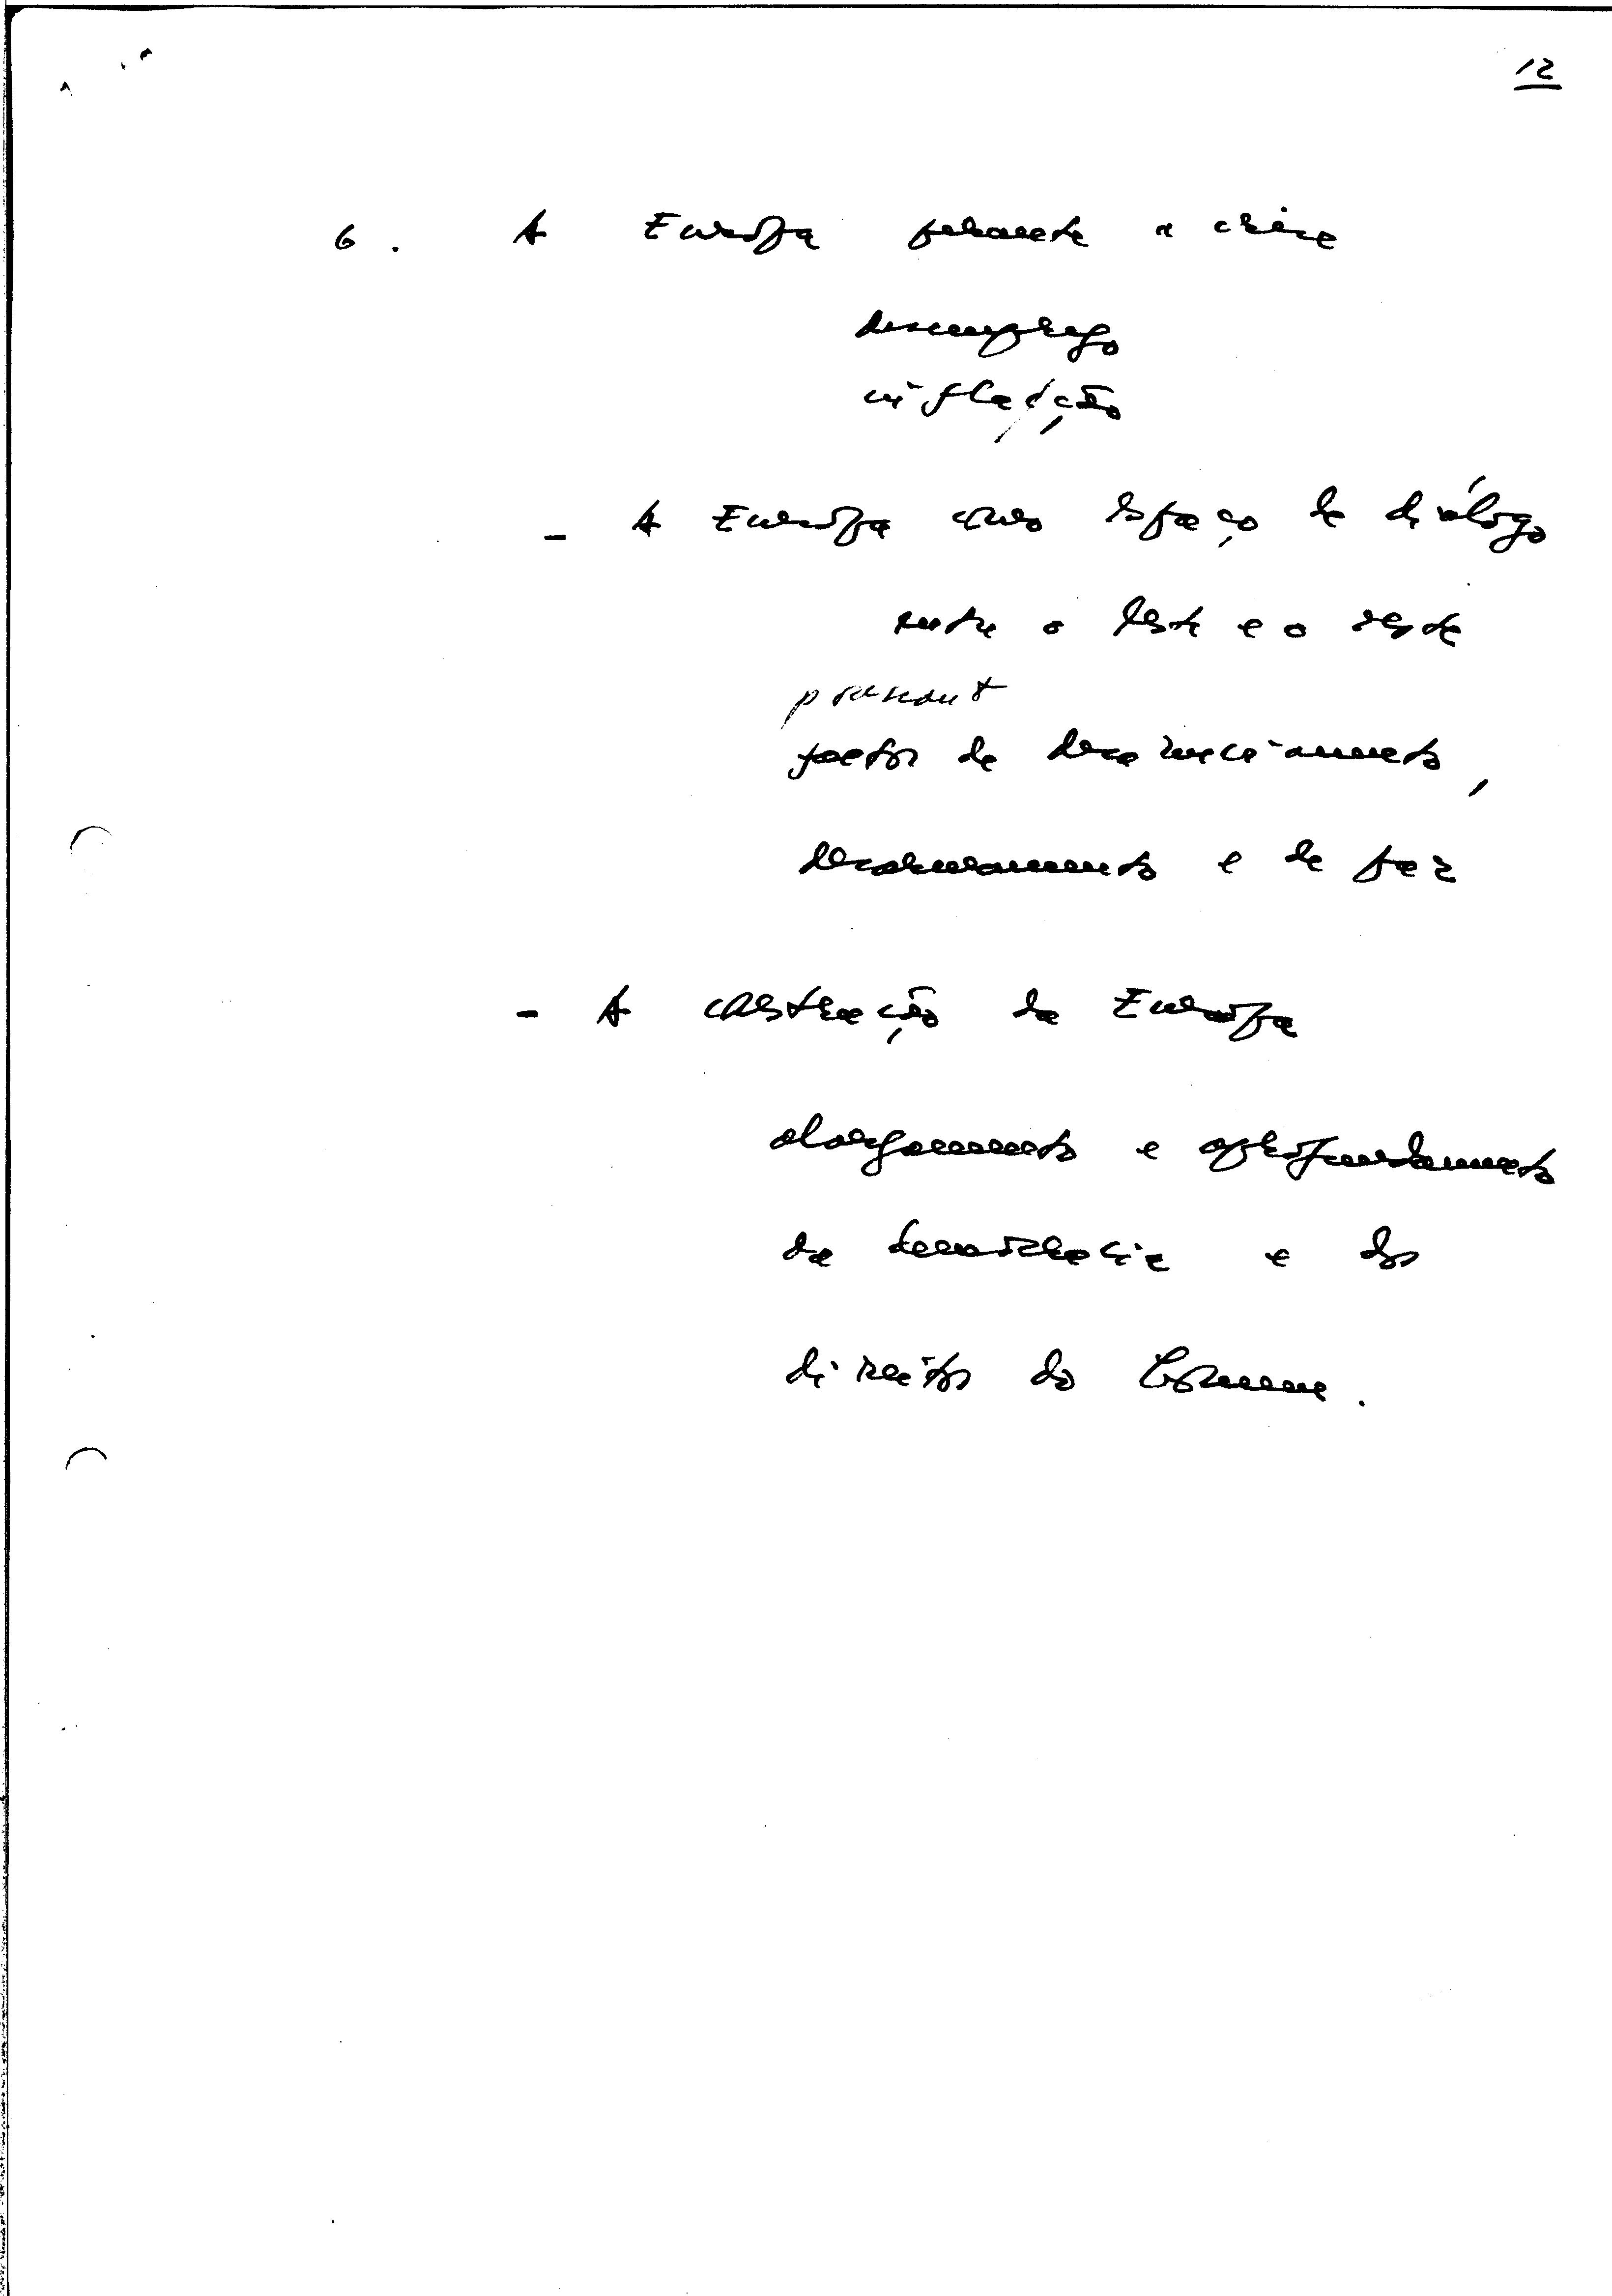 12
6. A Europa perante a crise
desemprego
inflação
- A Europa como espaço de diálogo
entre o leste e o oeste
factor de desanuviamento,
desarmamento e de paz
- A construção da Europa
alargamento e aprofundamento
da democracia e dos
direitos do Homem.